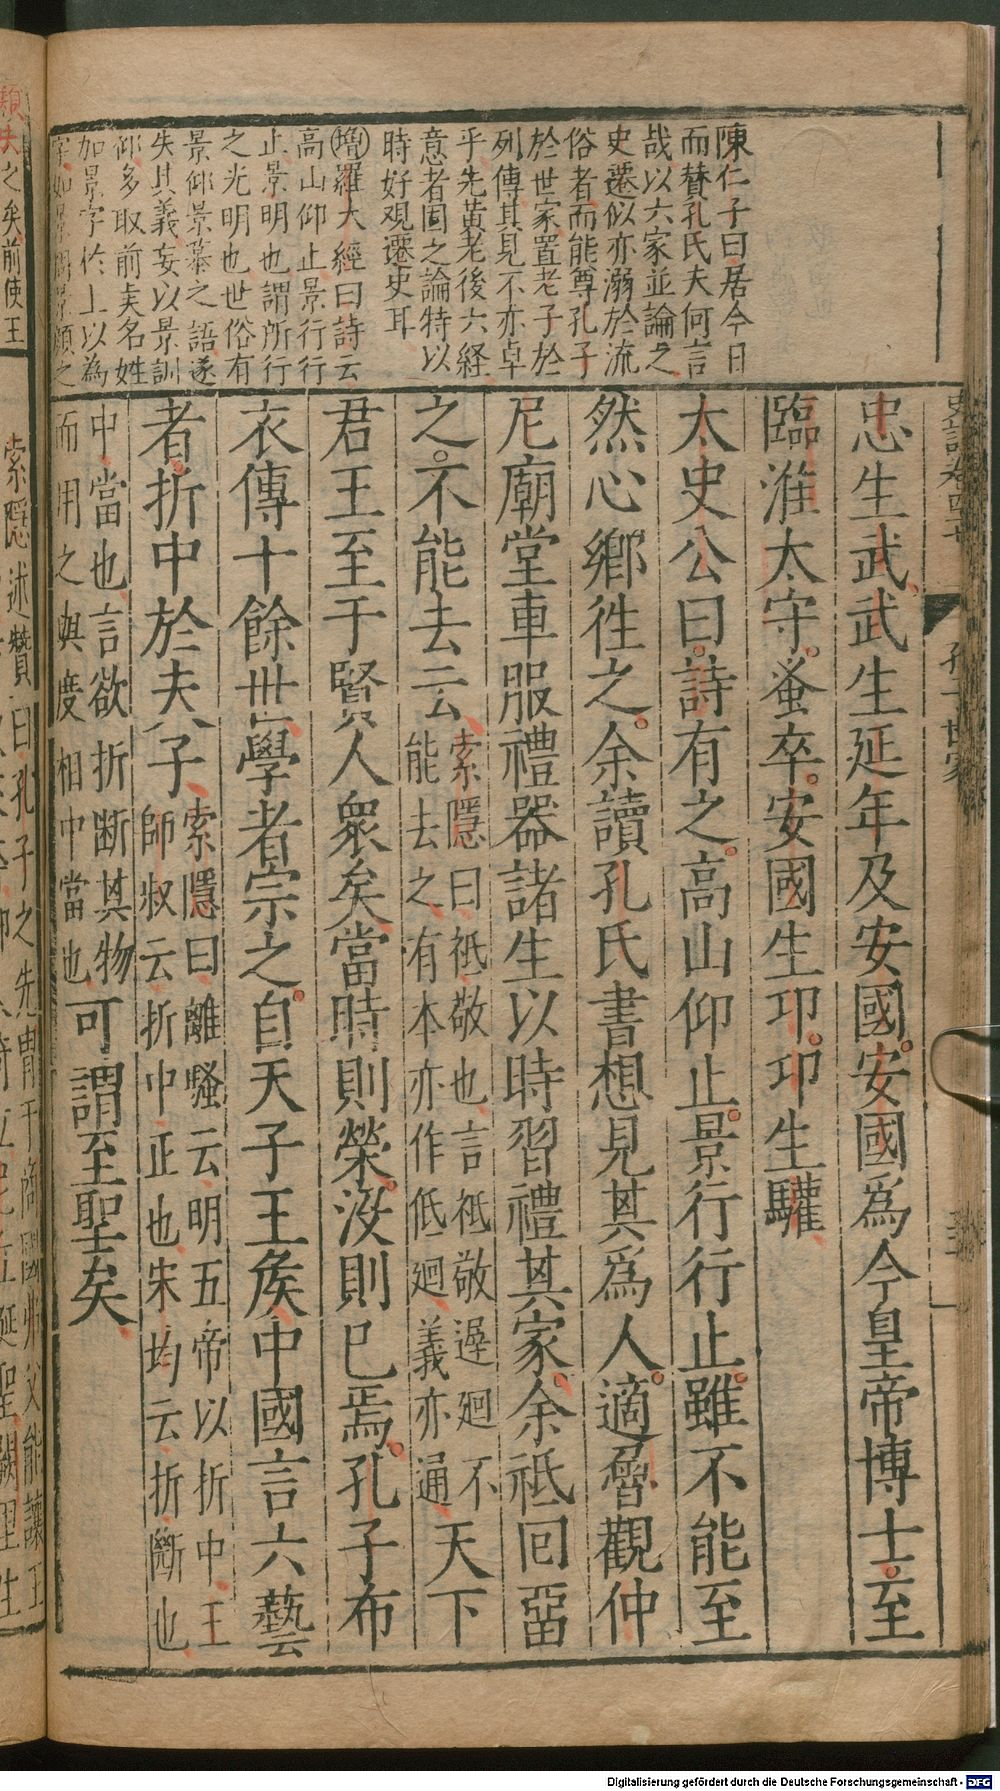 史記卷四十七
孔子世家
陳仁子曰居今日
而賛孔氏夫何言
哉以六家並論之
史遷似亦溺於流
俗者而能尊孔子
於世家置老子於
列傳其見不亦卓
乎先黃老後六経
意者固之論特以
時好观遷史耳
增羅大經曰詩云
高山仰止景行行
止景明也謂所行
之光明也世俗有
景仰景慕之語遂
失其義妄以景訓
仰多取前矦名姓
加景字於上以為
字如景周景顔之
忠生武武生延年及安國安國爲今皇帝博士至
臨淮太守蚤卒安國生卭卭生驩
太史公曰詩有之高山仰止景行行止雖不能至
然心鄉徃之余讀孔氏書想見其爲人適魯觀仲
尼廟堂車服禮器諸生以時習禮其家余祗回畱
之不能去云索隱曰祗敬也言祗敬遲迴不
能去之有本亦作低迴義亦通天下
君王至于賢人衆矣當時則榮沒則已焉孔子布
衣傳十餘世學者宗之自天子王矦中國言六藝
者折中於夫子索隱曰離騷云明五帝以折中王
師叔云折中正也宋均云折斷也
中當也言欲折斷其物
而用之與度相中當也可謂至聖矣
類失之矣前使王
索隠述贊曰孔子之先胄于商國弗父能讓正
Digitalisierung gefördert durch die Deutsche Forschungsgemeinschaft - DFG